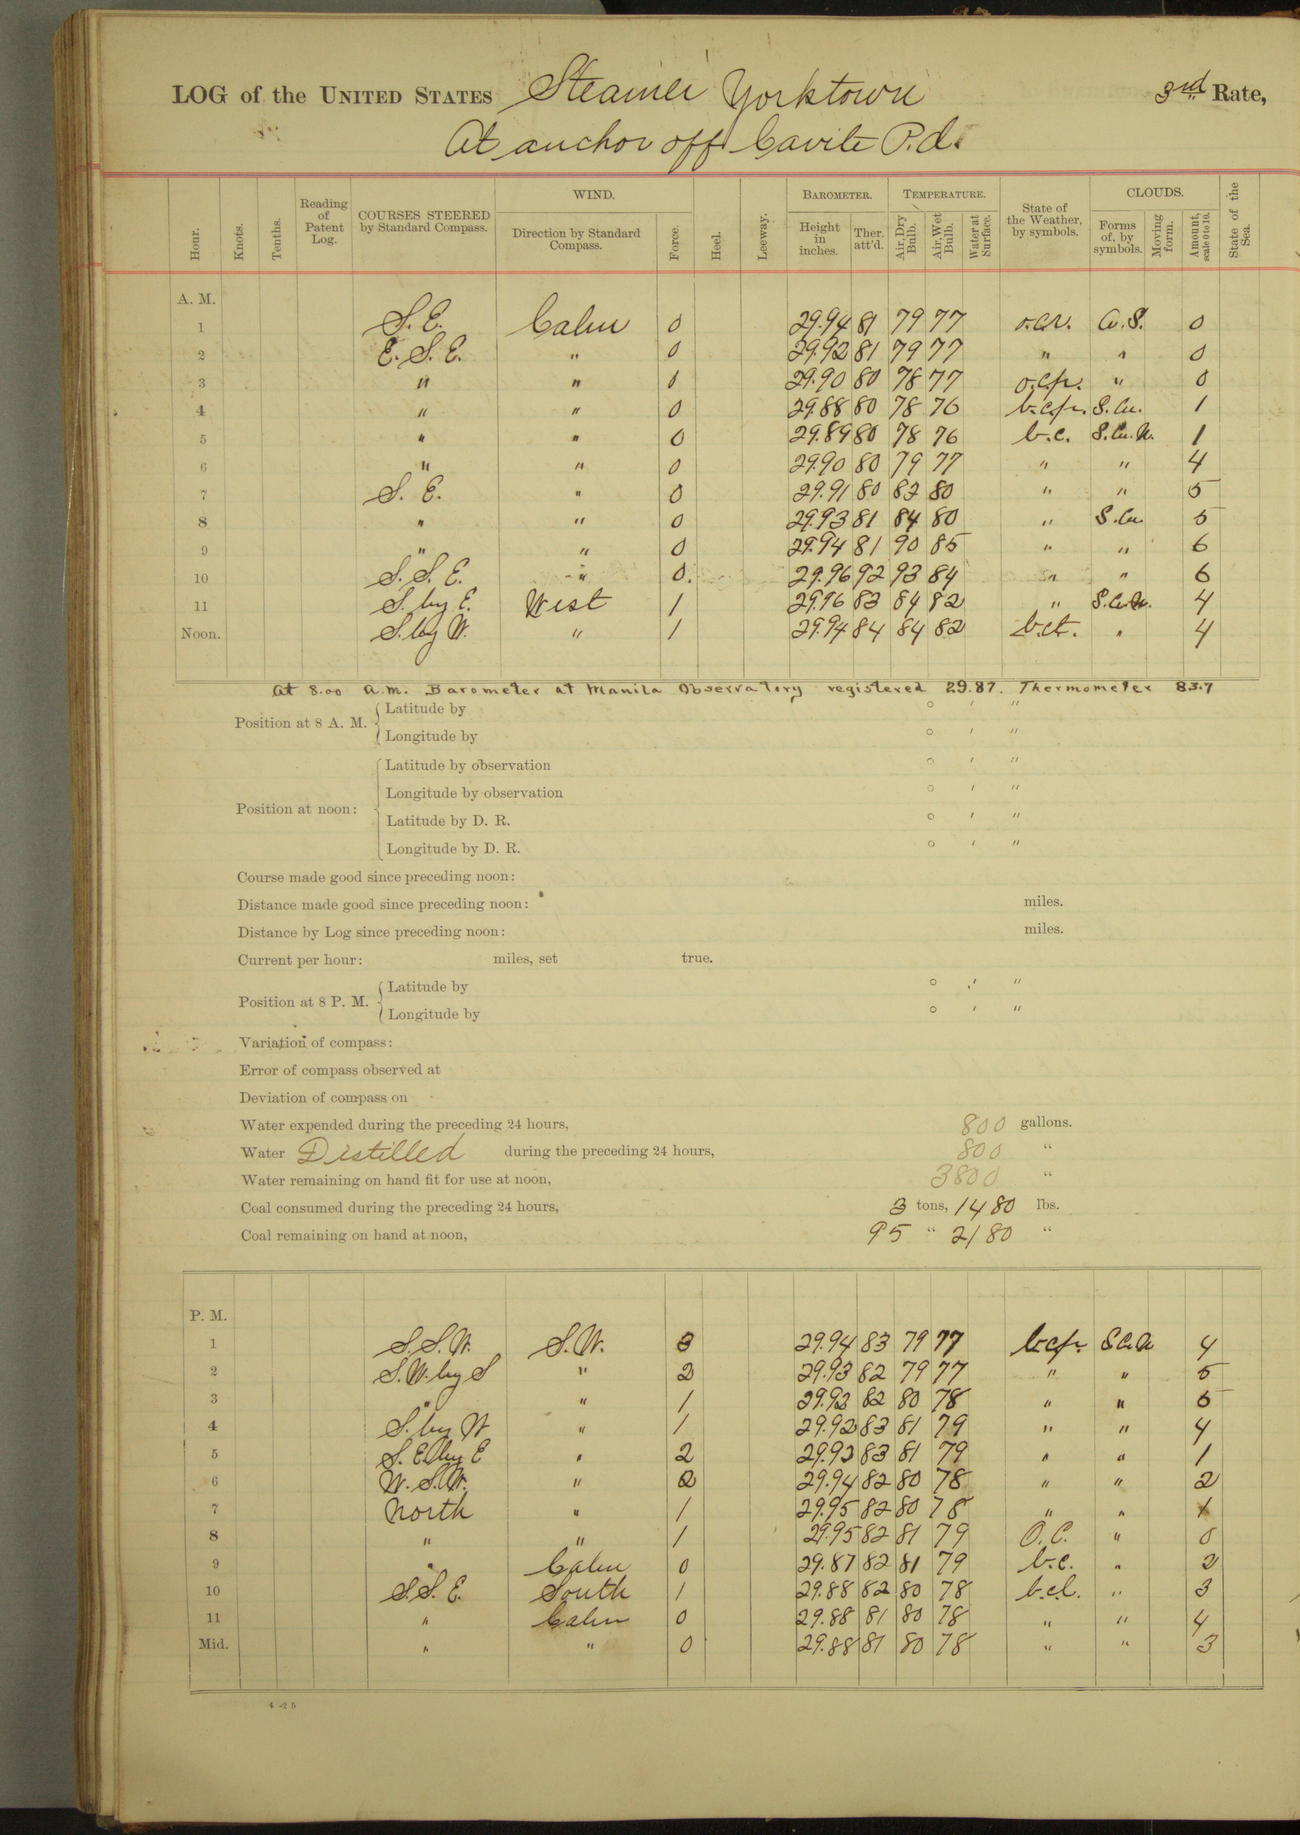 LOG of the UNITED STATES Steamer Yorktown 3rd Rate,
At anchor off Cavite P.I.
Hour. Knots. Tenths. Reading of Patent Log. COURSES STEERED by Standard Compass. WIND. Direction by Standard Compass. Force. Heel. Leeway. BAROMETER. Height in inches. Ther. att'd. TEMPERATURE. Air, Dry Bulb. Air, Wet Bulb. Water at Surface. State of the Weather, by symbols. CLOUDS. Forms of, by symbols. Moving form. Amount, scale 0 to 10. State of the Sea.
A. M.
1 S. E. Calm 0 29.94 81 79 77 0
2 E. S. E. " 0 29.92 81 79 77 " " 0
3 " " 0 29.90 80 78 77 o.c.p. " 0
4 " " 0 29.88 80 78 76 b.c.p. S. Cu. 1
5 " " 0 29.89 80 78 76 b.c. S. Cu. N. 1
6 " " 0 29.90 80 79 77 " " 4
7 S. E. " 0 29.91 80 82 80 " " 5
8 " " 0 29.93 81 84 80 " S. Cu. 5
9 " " 0 29.94 81 90 85 " " 6
10 S. S. E. " 0. 29.96 92 93 84 " " 6
11 S. by E. West 1 29.96 83 84 82 " S. Cu. N. 4
Noon. S. by W. " 1 29.94 84 84 82 b.c.t. " 4
At 8.00 a.m. Barometer at Manila Observatory registered 29.87. Thermometer 83.7
Position at 8 A. M. Latitude by ° ' "
Longitude by ° ' "
Latitude by observation ° ' "
Longitude by observation ° ' "
Position at noon:
Latitude by D. R. ° ' "
Longitude by D. R. ° ' "
Course made good since preceding noon:
Distance made good since preceding noon: miles.
Distance by Log since preceding noon: miles.
Current per hour: miles, set true.
Position at 8 P. M. Latitude by ° ' "
Longitude by ° ' "
Variation of compass:
Error of compass observed at
Deviation of compass on
Water expended during the preceding 24 hours, 800 gallons.
Water Distilled during the preceding 24 hours, 800 "
Water remaining on hand fit for use at noon, 3800 "
Coal consumed during the preceding 24 hours, 3 tons, 1480 lbs.
Coal remaining on hand at noon, 95 " 2180 "
P. M.
1 S. S. W. S. W. 3 29.94 83 79 77 b.c.p. S C. N 4
2 S. W. by S " 2 29.93 82 79 77 " " 5
3 " " 1 29.92 82 80 78 " " 5
4 S. by W " 1 29.92 83 81 79 " " 4
5 S. E. by E " 2 29.92 83 81 79 " " 1
6 W. S. W. " 2 29.94 82 80 78 " " 2
7 North " 1 29.95 82 80 78 " " 1
8 " " 1 29.95 82 81 79 O. C. " 0
9 " Calm 0 29.87 82 81 79 b.c. " 2
10 S. S. E. South 1 29.88 82 80 78 b.c.l. " 3
11 " Calm 0 29.88 81 80 78 " " 4
Mid. " " 0 29.88 81 80 78 " " 3
4-25